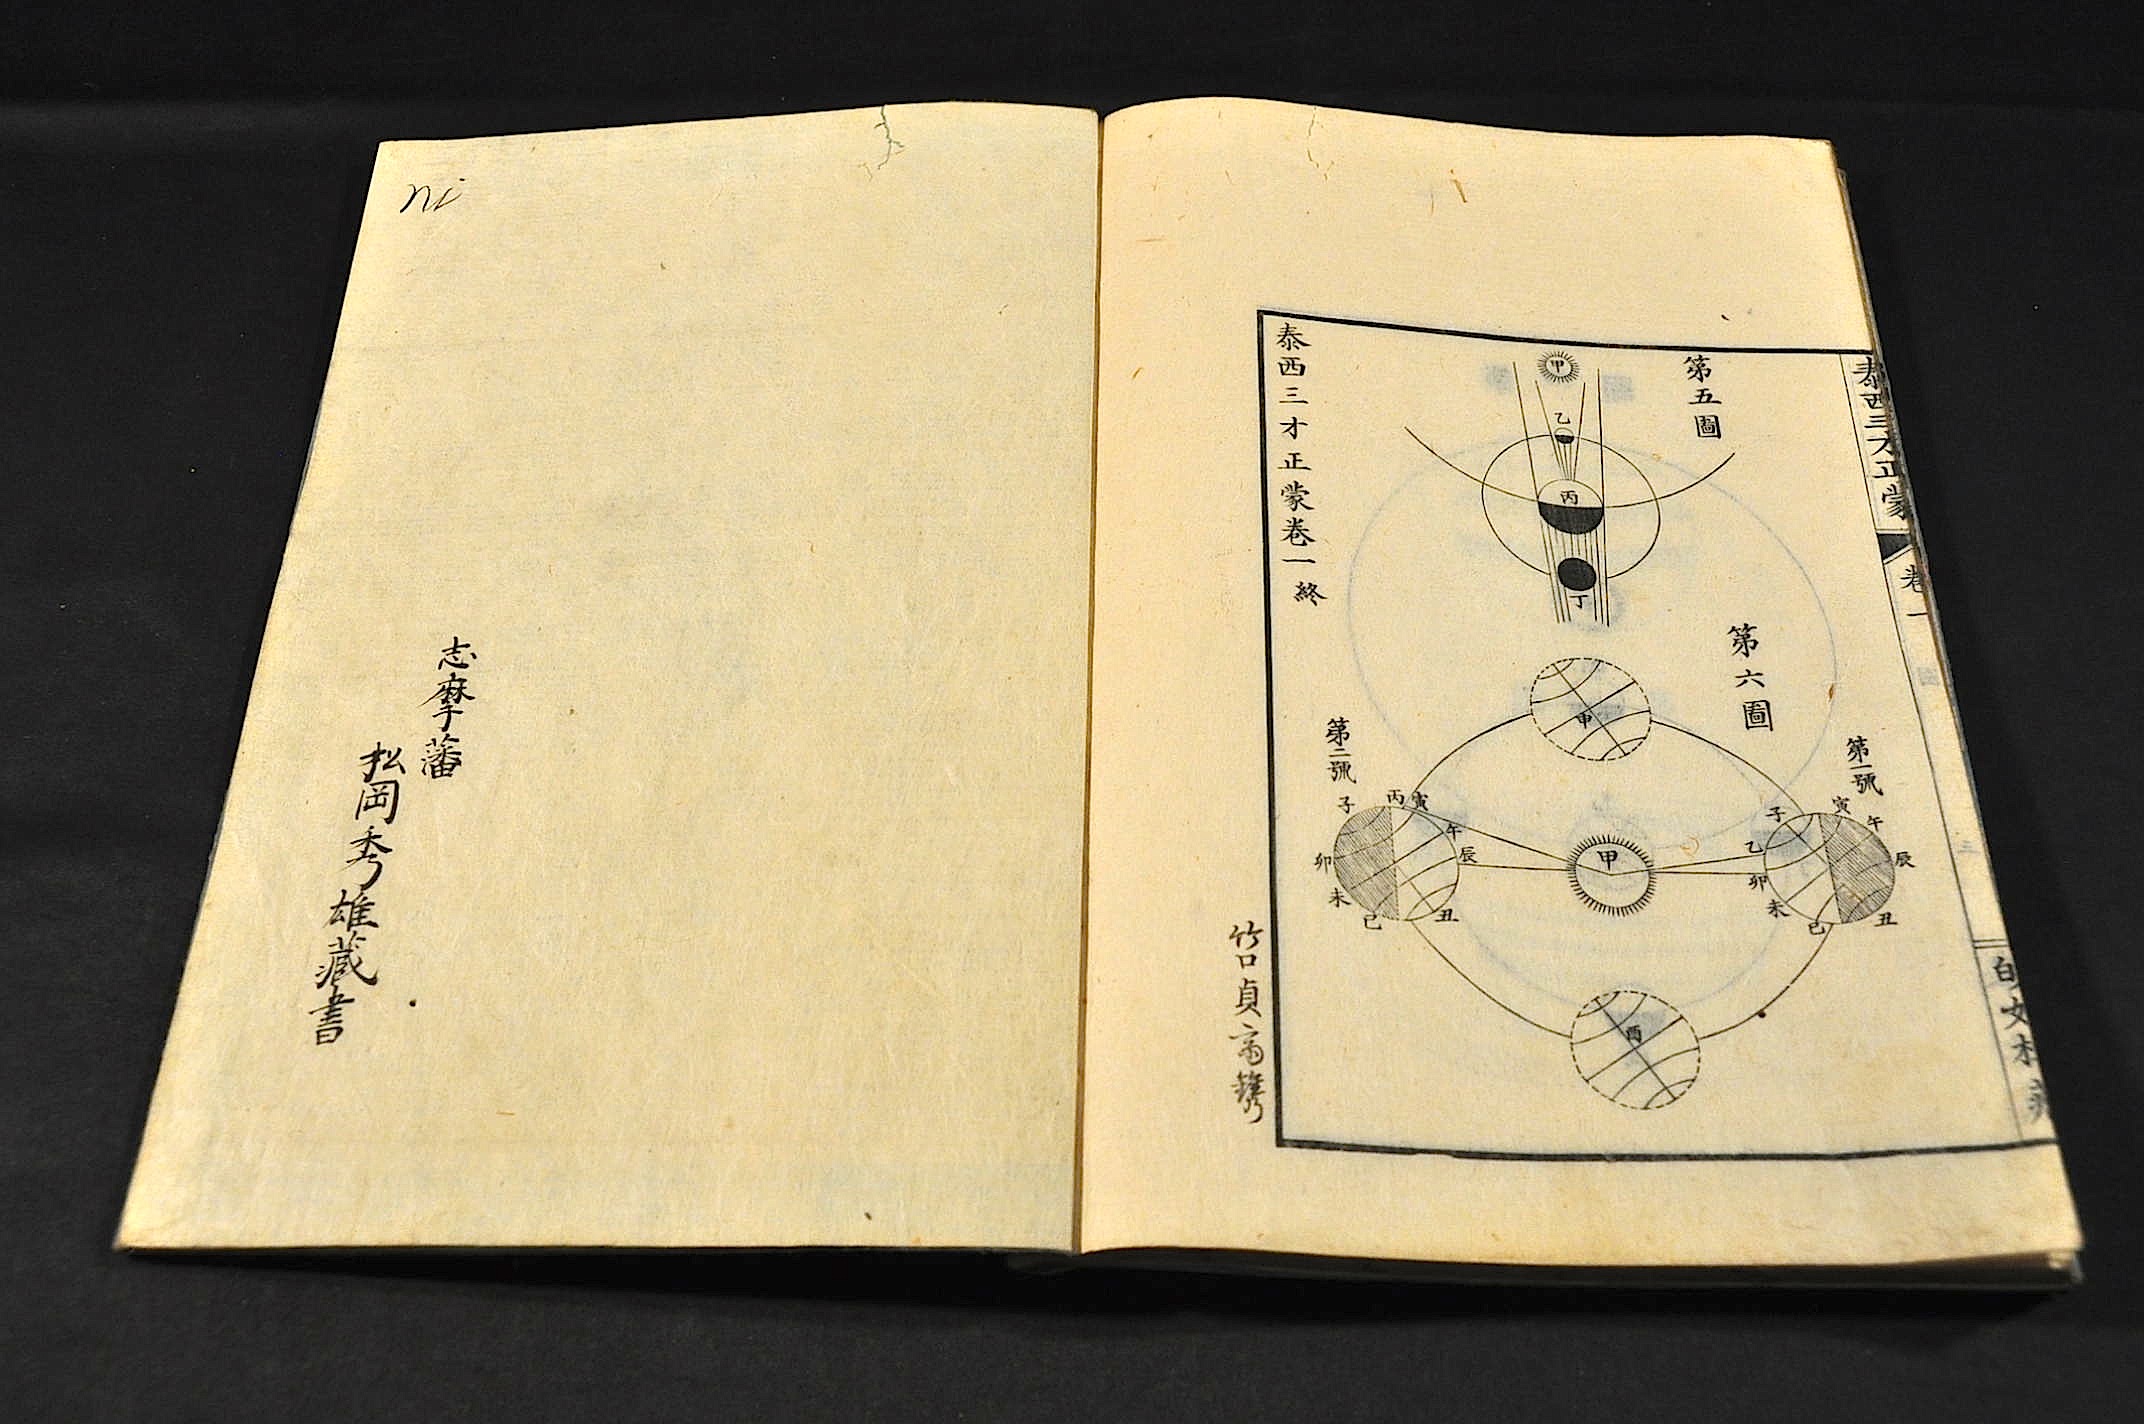 泰西三才正蒙
卷一
第五圖
甲
乙
丙
丁
第六圖
甲
第一號
子
寅
午
乙
辰
卯
未
丑
己
甲
第二號
子
丙
寅
午
卯
辰
未
丑
己
酉
泰西三才正蒙卷一終
竹口貞齋鐫
ni
志摩藩
松岡秀雄藏書